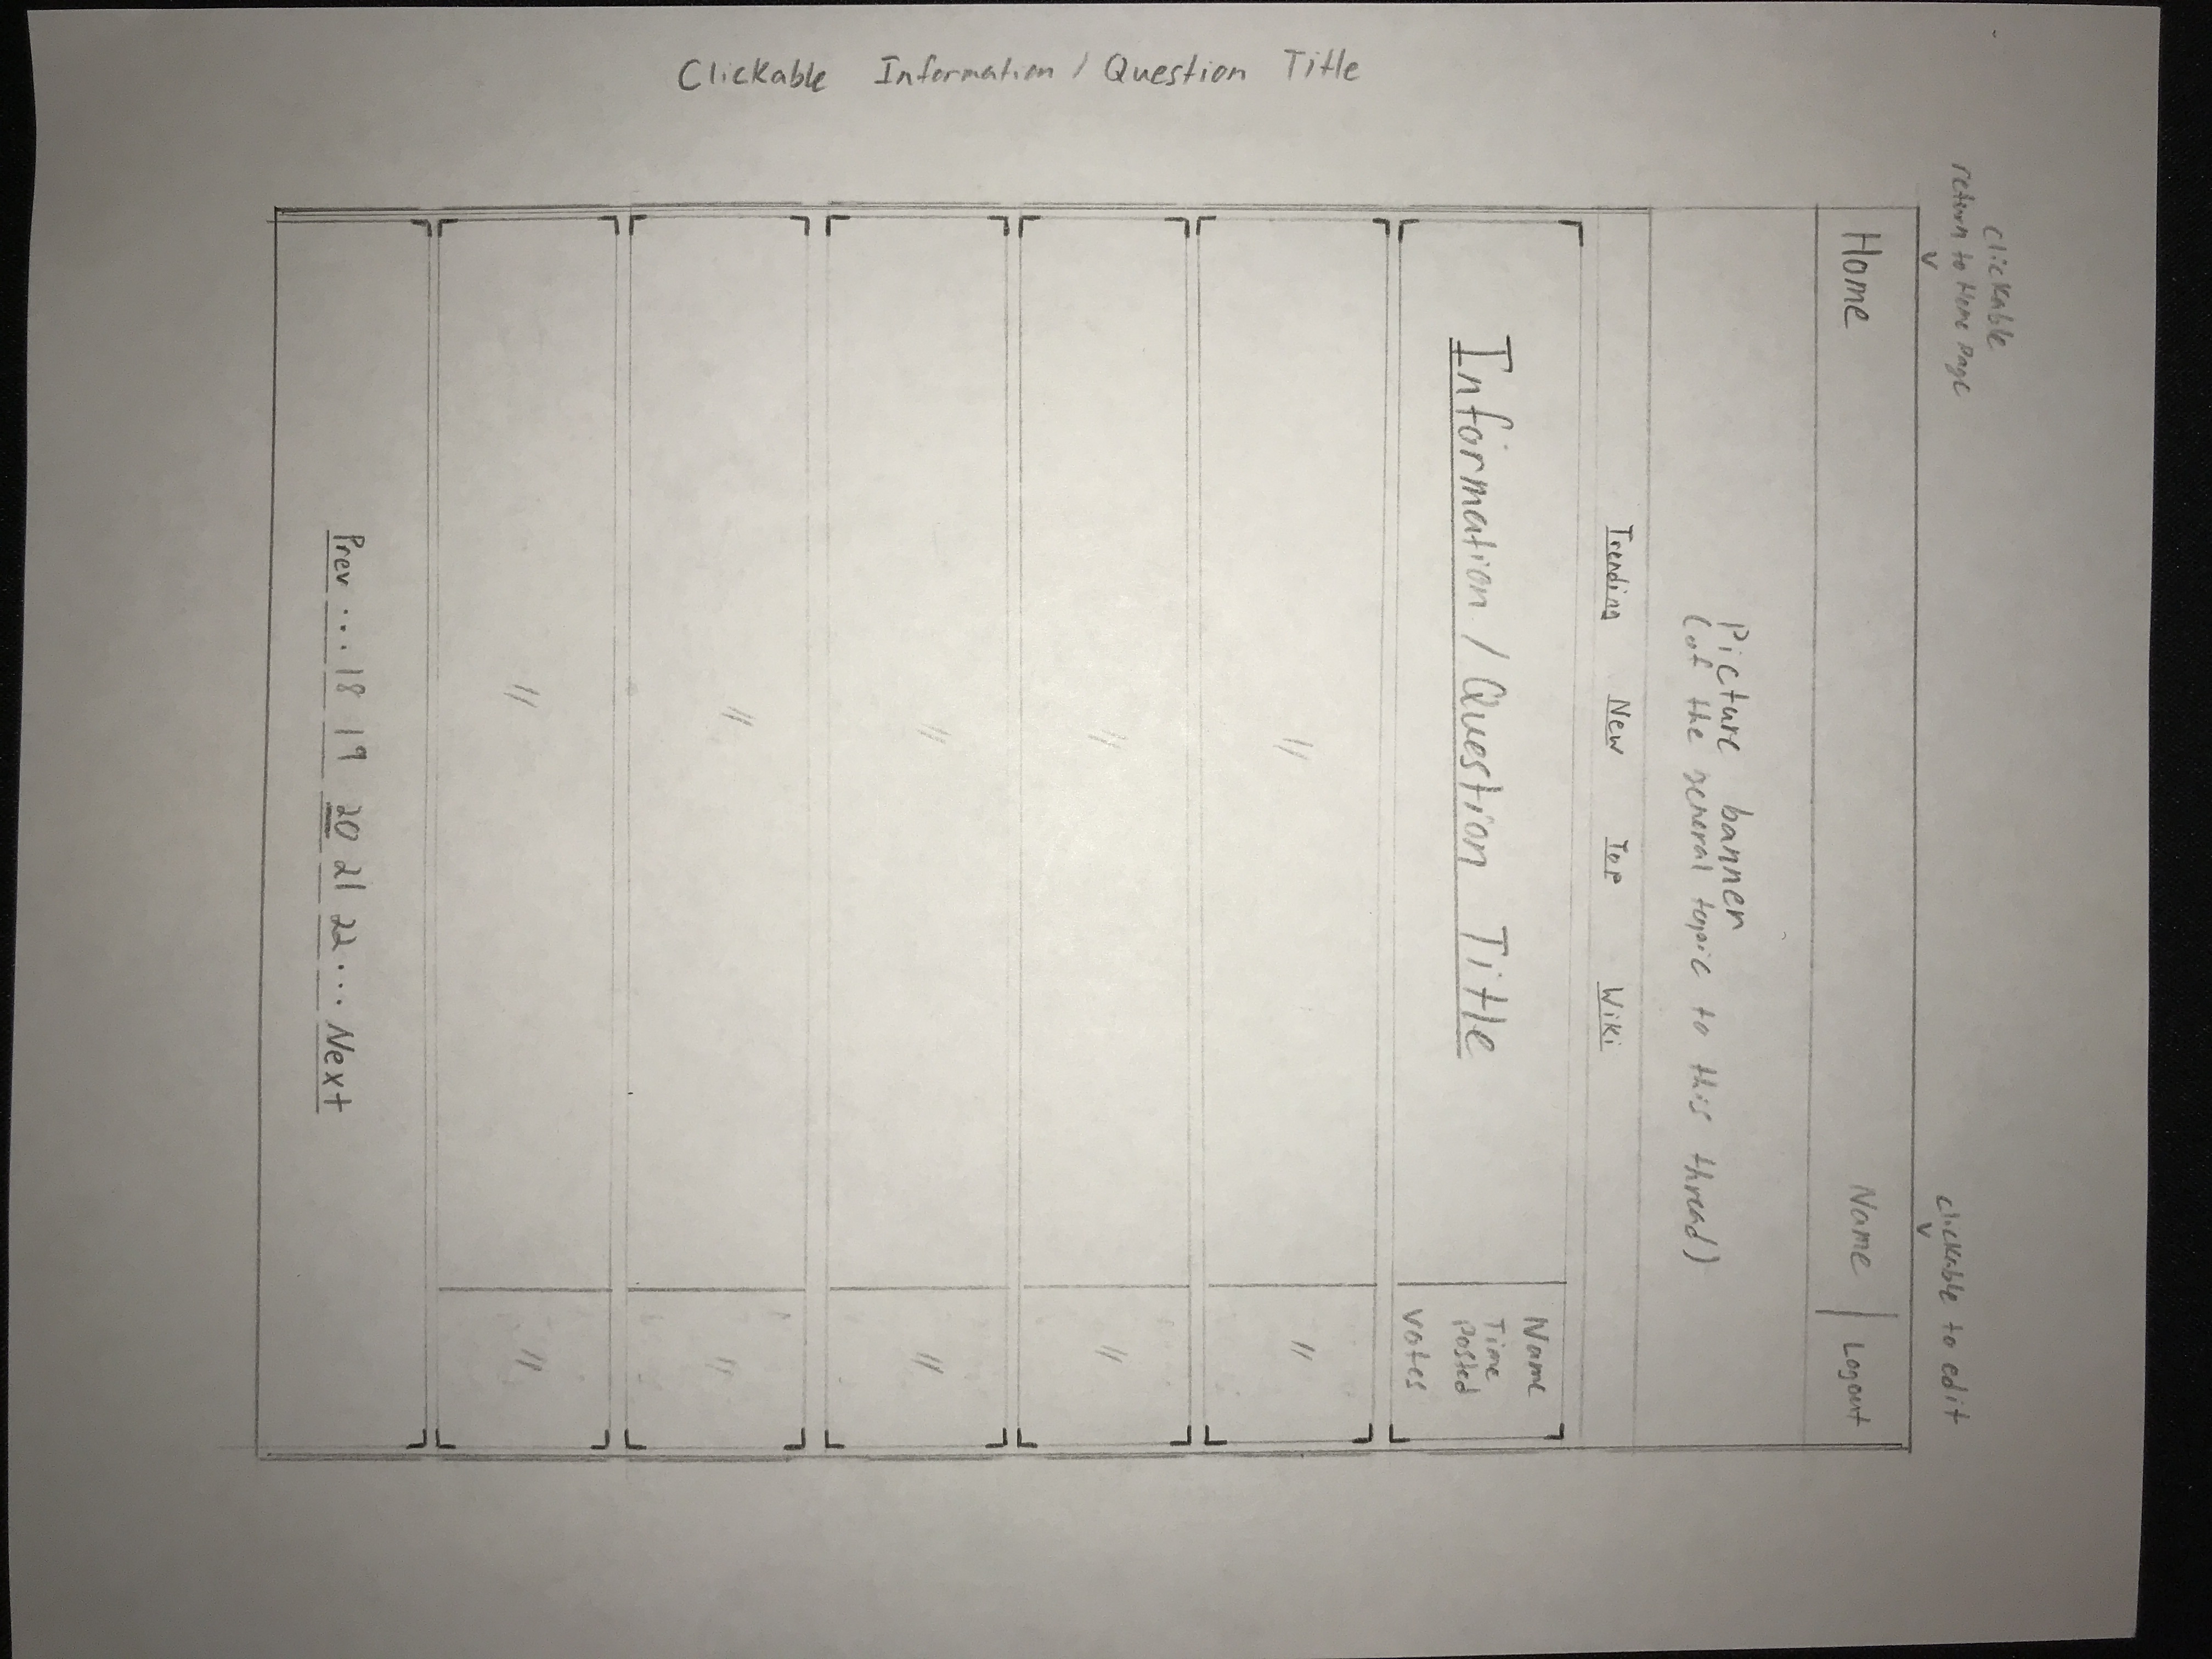 Clickable Information / Question Title
clickable
return to Home Page
v
clickable to edit
v
Home
Name | Logout
Picture banner
(of the general topic to this thread)
Trending New Top Wiki
Information / Question Title
Name
Time
Posted
Votes
〃 〃
〃 〃
〃 〃
〃 〃
〃 〃
Prev ... 18 19 20 21 22 ... Next